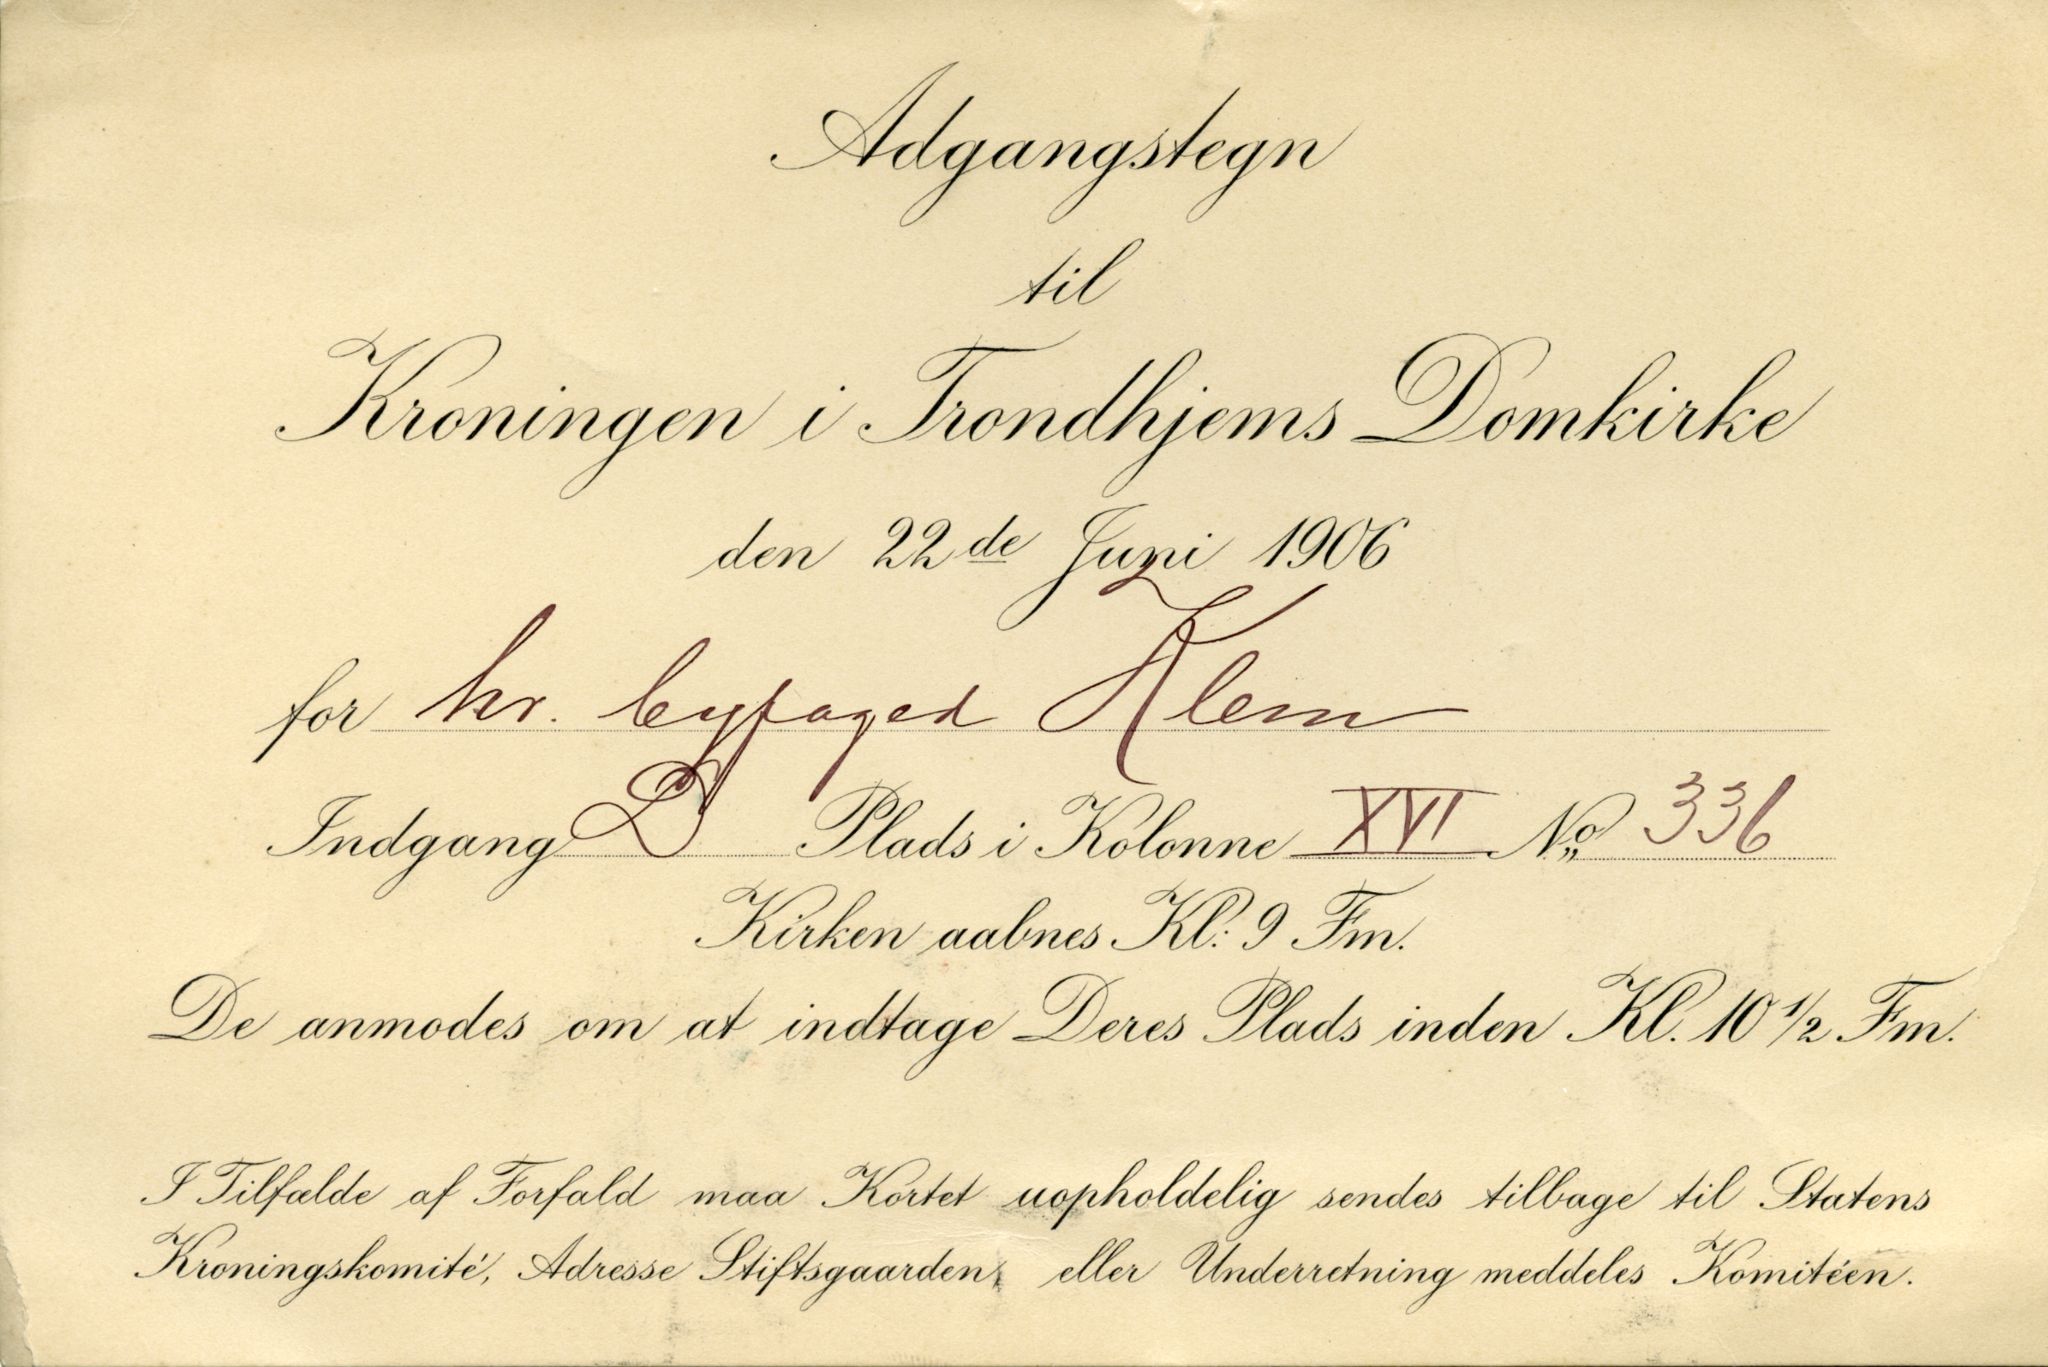 Adgangstegn
til
Kroningen i Trondhjems Domkirke
den 22de Juni 1906
for hr. byfoged Klem
Indgang D Plads i Kolonne XVI No 336
Kirken aabnes Kl. 9 Fm.
De anmodes om at indtage Deres Plads inden Kl. 10 1/2 Fm.
I Tilfælde af Forfald maa Kortet uopholdelig sendes tilbage til Statens
Kroningskomité, Adresse Stiftsgaarden, eller Underretning meddeles Komitéen.